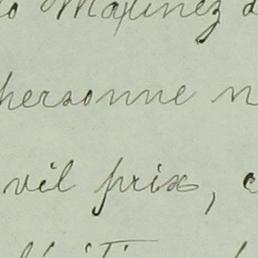 Martinez d
personne n
vil prix, c